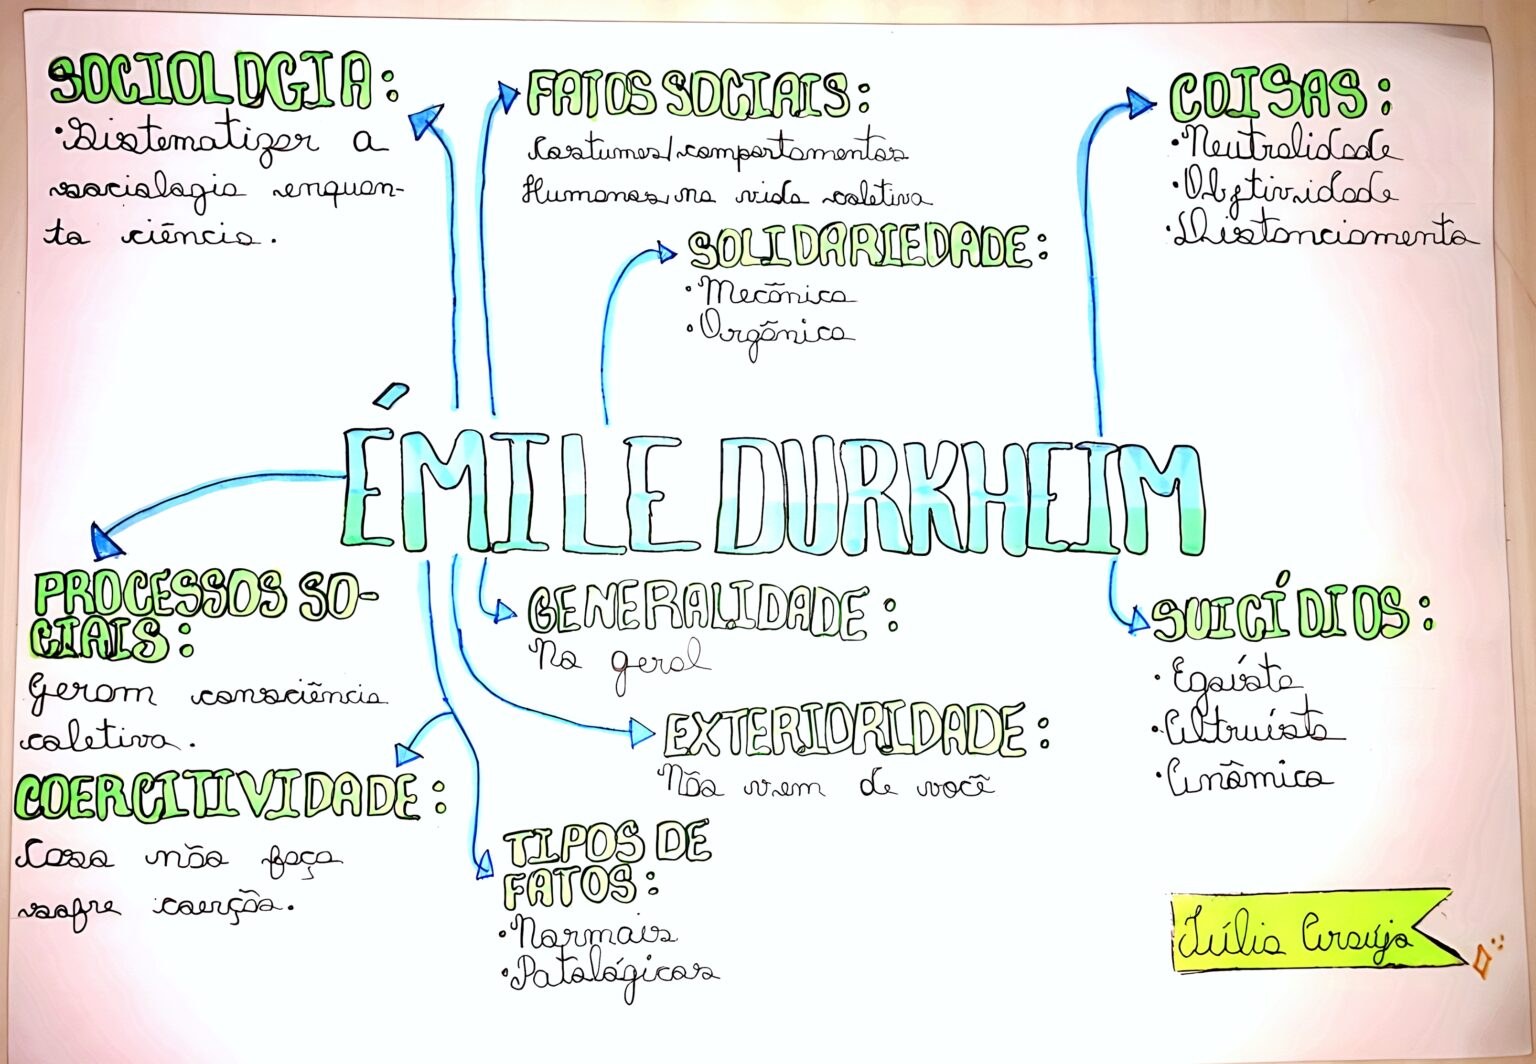 SOCIOLOGIA:
•Sistematizar a
sociologia enquan-
to ciência.
FATOS SOCIAIS:
Costumes/comportamentos
Humanos, na vida coletiva
SOLIDARIEDADE:
•Mecânica
•Orgânica
COISAS:
•Neutralidade
•Objtividade
•Distanciamento
ÉMILE DURKHEIM
PROCESSOS SO-
CIAIS:
Geram consciência
coletiva.
COERCITIVIDADE:
Caso não faça
sofre coerção.
GENERALIDADE:
No geral
EXTERIORIDADE:
Não vem de você
TIPOS DE
FATOS:
•Normais
•Patológicos
SUICÍDIOS:
•Egoísta
•Altruísta
•Anômico
Júlia Araújo